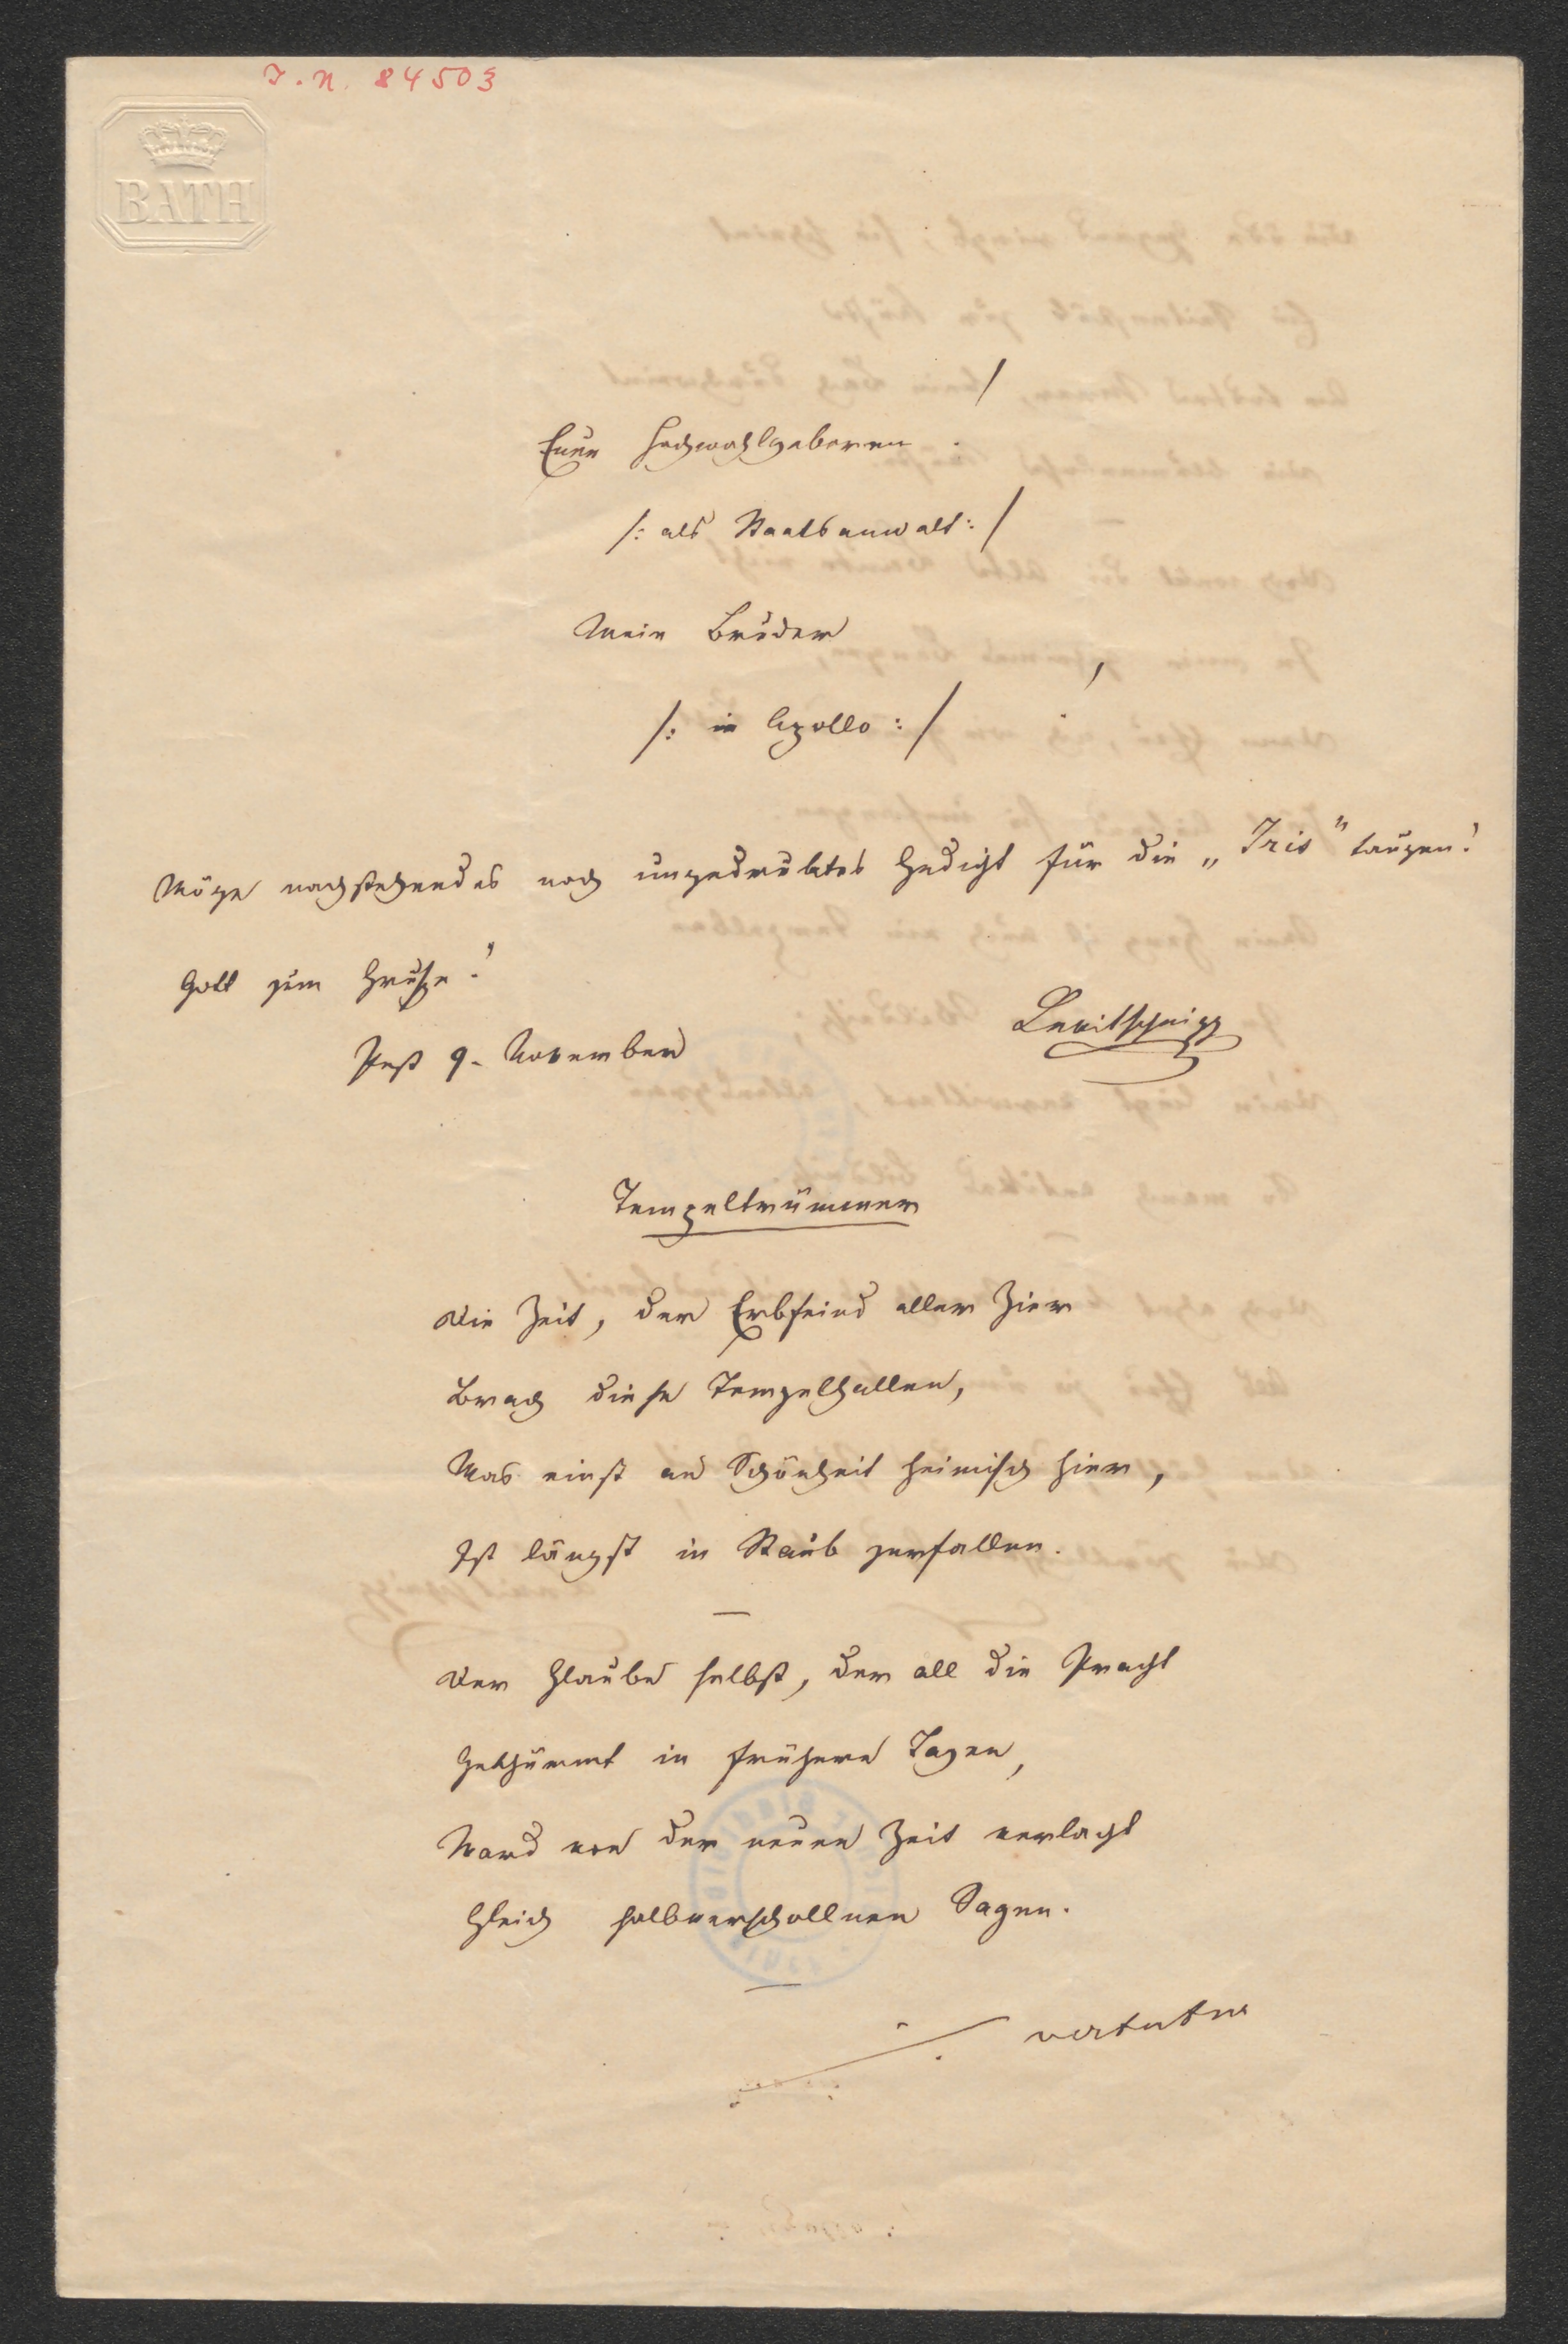 I.N. 84503
BATH
Euer Hochwohlgeboren
/: als Staatsanwalt :/
Mein Bruder
/: in Apollo :/
Möge nachstehendes noch ungedruktes Gedicht für die „Iris" taugen!
Gott zum Gruße!
Levitschnigg
Pest 9. November
Tempeltrümmer
Die Zeit, der Erbfeind aller Zier
Brach diese Tempelhallen,
Was einst an Schönheit heimisch hier,
Ist längst in Staub zerfallen.
—
Der Glaube selbst, der all die Pracht
Gethürmt in frühern Tagen,
Ward von der neuen Zeit verlacht
Gleich halbverschollnen Sagen.
—
./. vertatur